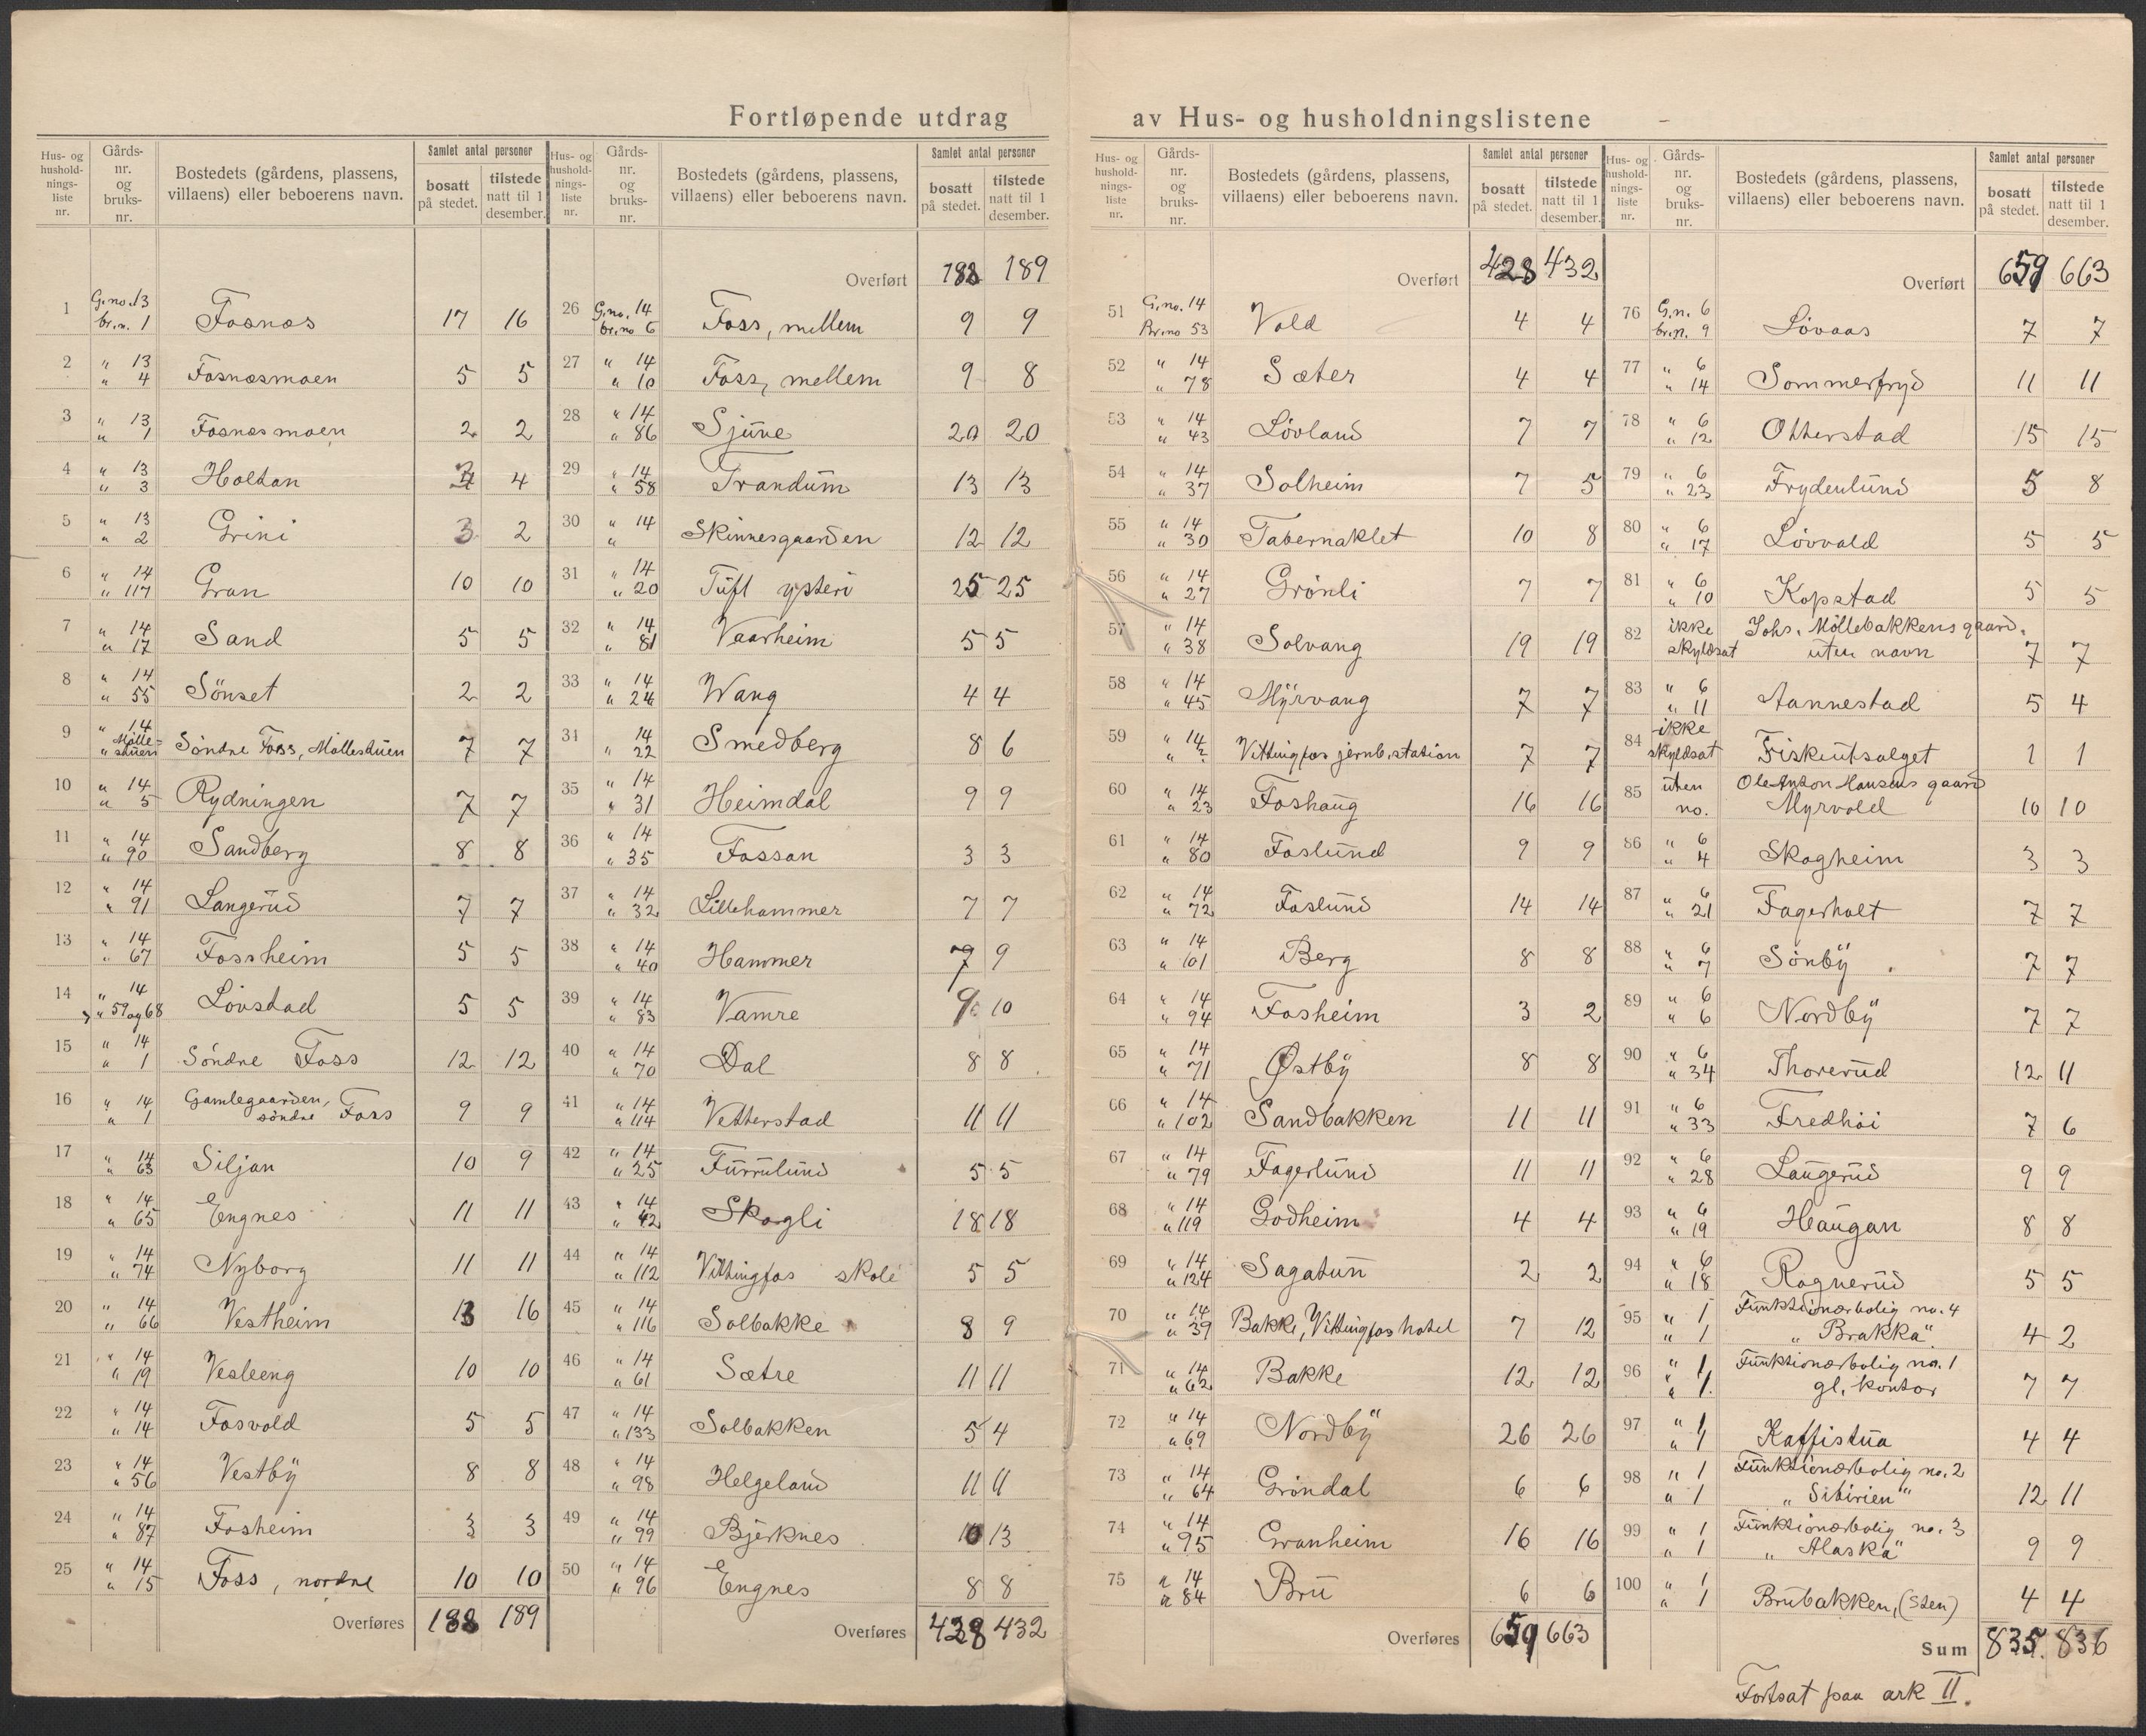 Fortløpende utdrag av Hus- og husholdningslistene
Hus- og hushold-nings-liste nr. Gårds-nr. og bruks-nr. Bostedets (gårdens, plassens, villaens) eller beboerens navn. Samlet antal personer bosatt på stedet. tilstede natt til 1 desember.
1 G.no. 13 br.n. 1 Fosnæs 17 16
2 " 13 " 4 Fosnæsmoen 5 5
3 " 13 " 1 Fosnæsmoen 2 2
4 " 13 " 3 Holtan 4
5 " 13 " 2 Grini 3 2
6 " 14 " 117 Gran 10 10
7 " 14 " 17 Sand 5 5
8 " 14 " 55 Sönset 2 2
9 " 14 " Mølle-stuen Söndre Foss, Møllestuen 7 7
10 " 14 " 5 Rydningen 7 7
11 " 14 " 90 Sandberg 8 8
12 " 14 " 91 Langerud 7 7
13 " 14 " 67 Fossheim 5 5
14 " 14 " 59 og 68 Lövstad 5 5
15 " 14 " 1 Söndre Foss 12 12
16 " 14 " 1 Gamlegaarden, söndre Foss 9 9
17 " 14 " 63 Siljan 10 9
18 " 14 " 65 Engnes 11 11
19 " 14 " 74 Nyborg 11 11
20 " 14 " 66 Vestheim 13 16
21 " 14 " 19 Vesleeng 10 10
22 " 14 " 14 Fosvold 5 5
23 " 14 " 56 Vestby 8 8
24 " 14 " 87 Fosheim 3 3
25 " 14 " 15 Foss, nordre 10 10
Overføres 188 189
Hus- og hushold-nings-liste nr. Gårds-nr. og bruks-nr. Bostedets (gårdens, plassens, villaens) eller beboerens navn. Samlet antal personer bosatt på stedet. tilstede natt til 1 desember.
Overført 188 189
26 G.no. 14 br.no 6 Foss, mellem 9 9
27 " 14 " 10 Foss, mellem 9 8
28 " 14 " 86 Sjuve 20 20
29 " 14 " 58 Trandum 13 13
30 " 14 " Skinnesgaarden 12 12
31 " 14 " 20 Tuft ysteri 25 25
32 " 14 " 81 Vaarheim 5 5
33 " 14 " 24 Wang 4 4
34 14 " 22 Smedberg 8 6
35 " 14 " 31 Heimdal 9 9
36 " 14 " 35 Fossan 3 3
37 " 14 " 32 Lillehammer 7 7
38 " 14 " 40 Hammer 9
39 " 14 " 83 Vamre 10
40 " 14 " 70 Dal 8 8
41 " 14 " 114 Vetterstad 11 11
42 " 14 " 25 Furrulund 5 5
43 " 14 " 42 Skogli 18 18
44 " 14 " 112 Vittingfos skole 5 5
45 " 14 " 116 Solbakke 8 9
46 " 14 " 61 Sætre 11 11
47 " 14 " 133 Solbakken 5 4
48 " 14 " 98 Helgeland 11 11
49 " 14 " 99 Bjerknes 10 13
50 " 14 " 96 Engnes 8 8
Overføres 428 432
Hus- og hushold-nings-liste nr. Gårds-nr. og bruks-nr. Bostedets (gårdens, plassens, villaens) eller beboerens navn. Samlet antal personer bosatt på stedet. tilstede natt til 1 desember.
Overført 428 432
51 G.no. 14 Br.no 53 Vold 4 4
52 " 14 " 78 Sæter 4 4
53 " 14 " 43 Lövland 7 7
54 " 14 " 37 Solheim 7 5
55 " 14 " 30 Tabernaklet 10 8
56 " 14 " 27 Grönli 7 7
57 " 14 " 38 Solvang 19 19
58 " 14 " 45 Myrvang 7 7
59 " 14 " Vittingfos jernb.station 7 7
60 " 14 " 23 Foshaug 16 16
61 " 14 " 80 Foslund 9 9
62 " 14 " 72 Foslund 14 14
63 " 14 " 101 Berg 8 8
64 " 14 " 94 Fosheim 3 2
65 " 14 " 71 Østby 8 8
66 " 14 " 102 Sandbakken 11 11
67 " 14 " 79 Fagerlund 11 11
68 " 14 " 119 Godheim 4 4
69 " 14 " 124 Sagatun 2 2
70 " 14 " 39 Bakke, Vittingfos hotel 7 12
71 " 14 " 62 Bakke 12 12
72 " 14 " 69 Nordby 26 26
73 " 14 " 64 Gröndal 6 6
74 " 14 " 95 Granheim 16 16
75 " 14 " 84 Bru 6 6
Overføres 659 663
Hus- og hushold-nings-liste nr. Gårds-nr. og bruks-nr. Bostedets (gårdens, plassens, villaens) eller beboerens navn. Samlet antal personer bosatt på stedet. tilstede natt til 1 desember.
Overført 659 663
76 G.n. 6 br.n. 9 Lövaas 7 7
77 " 6 " 14 Sommerfryd 11 11
78 " 6 " 12 Otterstad 15 15
79 " 6 " 23 Frydenlund 5 8
80 " 6 " 17 Lövvold 5 5
81 " 6 " 10 Kopstad 5 5
82 ikke skyldsat Johs. Möllebakkens gaard, uten navn 7 7
83 " 6 " 11 Aannestad 5 4
84 ikke skyldsat Fiskeutsalget 1 1
85 uten no. Ole Anton Hansens gaard Myrvold 10 10
86 " 6 " 4 Skogheim 3 3
87 " 6 " 21 Fagerholt 7 7
88 " 6 " 7 Sönby 7 7
89 " 6 " 6 Nordby 7 7
90 " 6 " 34 Thorerud 12 11
91 " 6 " 33 Fredhöi 7 6
92 " 6 " 28 Langerud 9 9
93 " 6 " 19 Haugan 8 8
94 " 6 " 18 Rognerud 5 5
95 " 1 " 1 Funktionærbolig no. 4 "Brakka" 4 2
96 " 1 " 1 Funktionærbolig no. 1 gl. kontor 7 7
97 " 1 " 1 Kaffistua 4 4
98 " 1 " 1 Funktionærbolig no. 2 "Sibirien" 12 11
99 " 1 " 1 Funktionærbolig no. 3 "Alaska" 9 9
100 " 1 " 1 Brubakken, (Sten) 4 4
Sum 835. 836
Fortsat paa ark II.